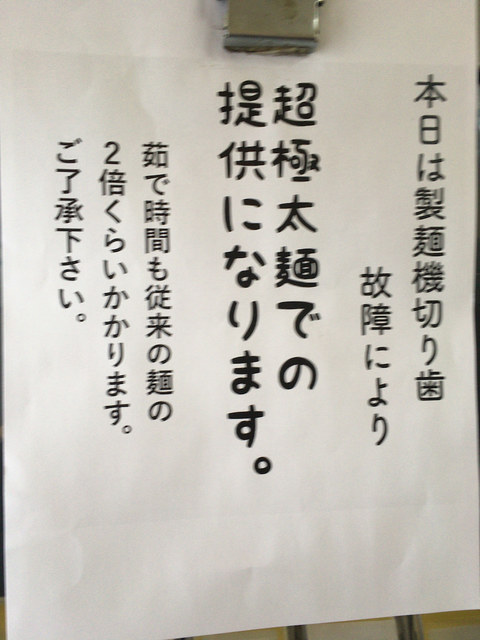 本日は製麺機切り歯
故障により
超極太麺での
提供になります。
茹で時間も従来の麺の
2倍くらいかかります。
ご了承下さい。